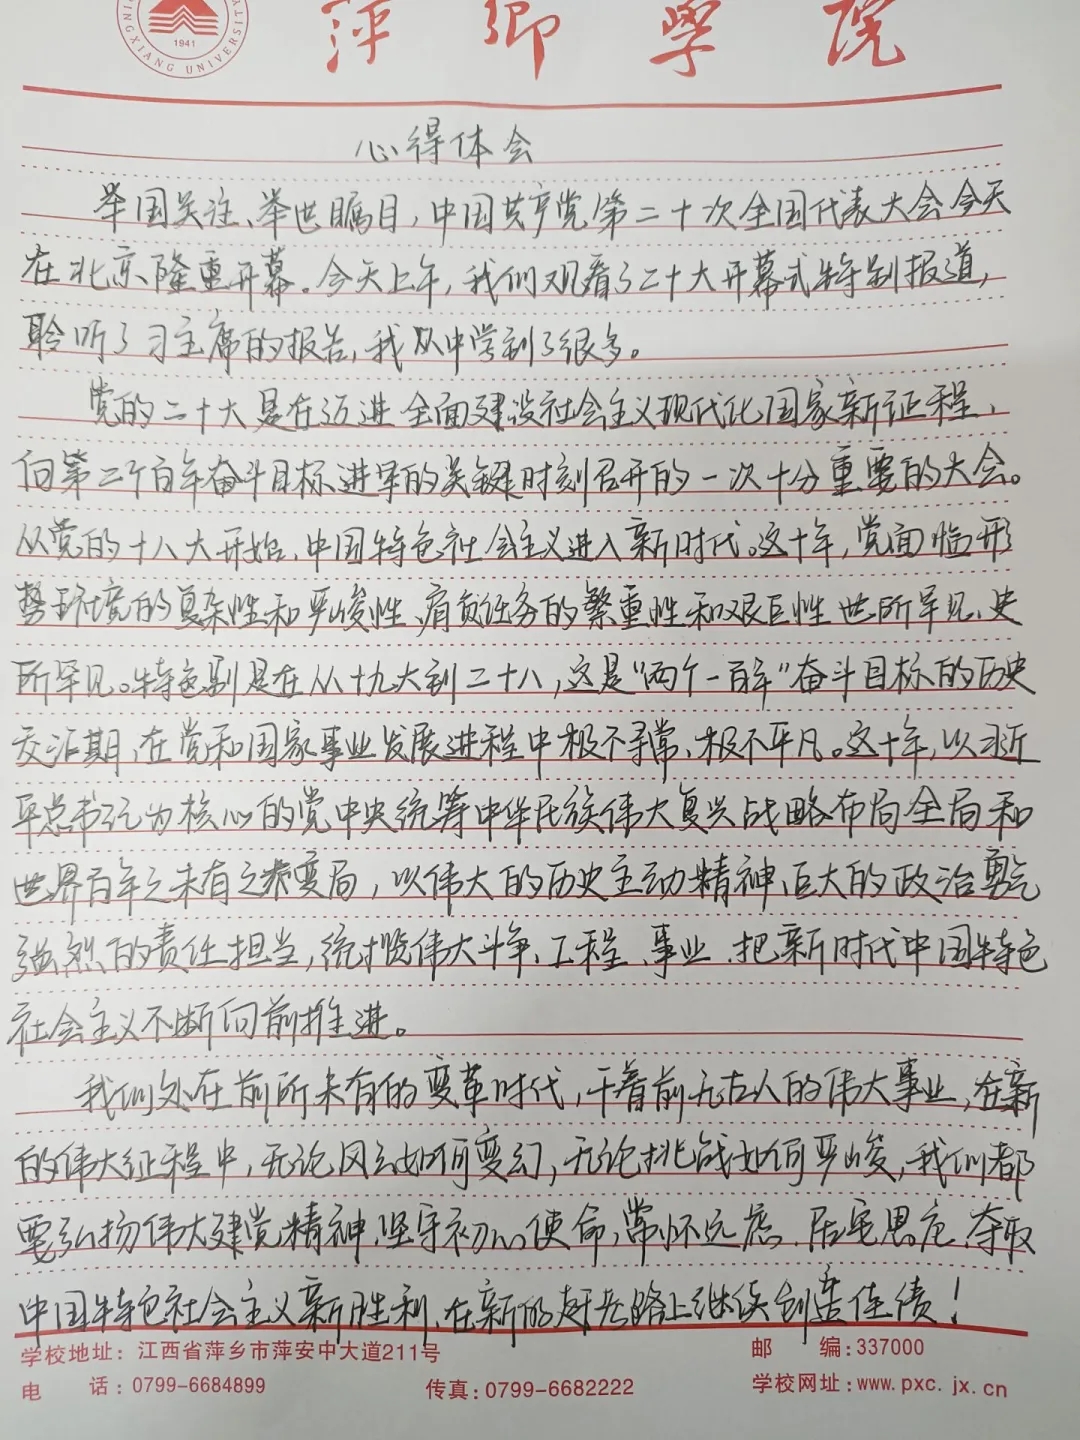 1941
PINGXIANG UNIVERSITY
萍乡学院
心得体会
举国关注、举世瞩目，中国共产党第二十次全国代表大会今天
在北京隆重开幕。今天上午，我们观看了二十大开幕式特别报道，
聆听了习主席的报告，我从中学到了很多。
党的二十大是在迈进全面建设社会主义现代化国家新征程、
向第二个百年奋斗目标进军的关键时刻召开的一次十分重要的大会。
从党的十八大开始，中国特色社会主义进入新时代。这十年，党面临形
势环境的复杂性和严峻性、肩负任务的繁重性和艰巨性世所罕见、史
所罕见。特色别是在从十九大到二十八，这是“两个一百年”奋斗目标的历史
交汇期，在党和国家事业发展进程中极不寻常、极不平凡。这十年，以习近
平总书记为核心的党中央统筹中华民族伟大复兴战略布局全局和
世界百年之未有之大变局，以伟大的历史主动精神、巨大的政治勇气
强烈的责任担当，统揽伟大斗争、工程、事业、把新时代中国特色
社会主义不断向前推进。
我们处在前所未有的变革时代，干着前无古人的伟大事业，在新
的伟大征程中，无论风云如何变幻，无论挑战如何严峻，我们都
要弘扬伟大建党精神、坚守初心使命，常怀远虑、居安思危、夺取
中国特色社会主义新胜利，在新的赶考路上继续创造佳绩！
学校地址：江西省萍乡市萍安中大道211号 邮 编：337000
电 话：0799-6684899 传真：0799-6682222 学校网址：www.pxc.jx.cn